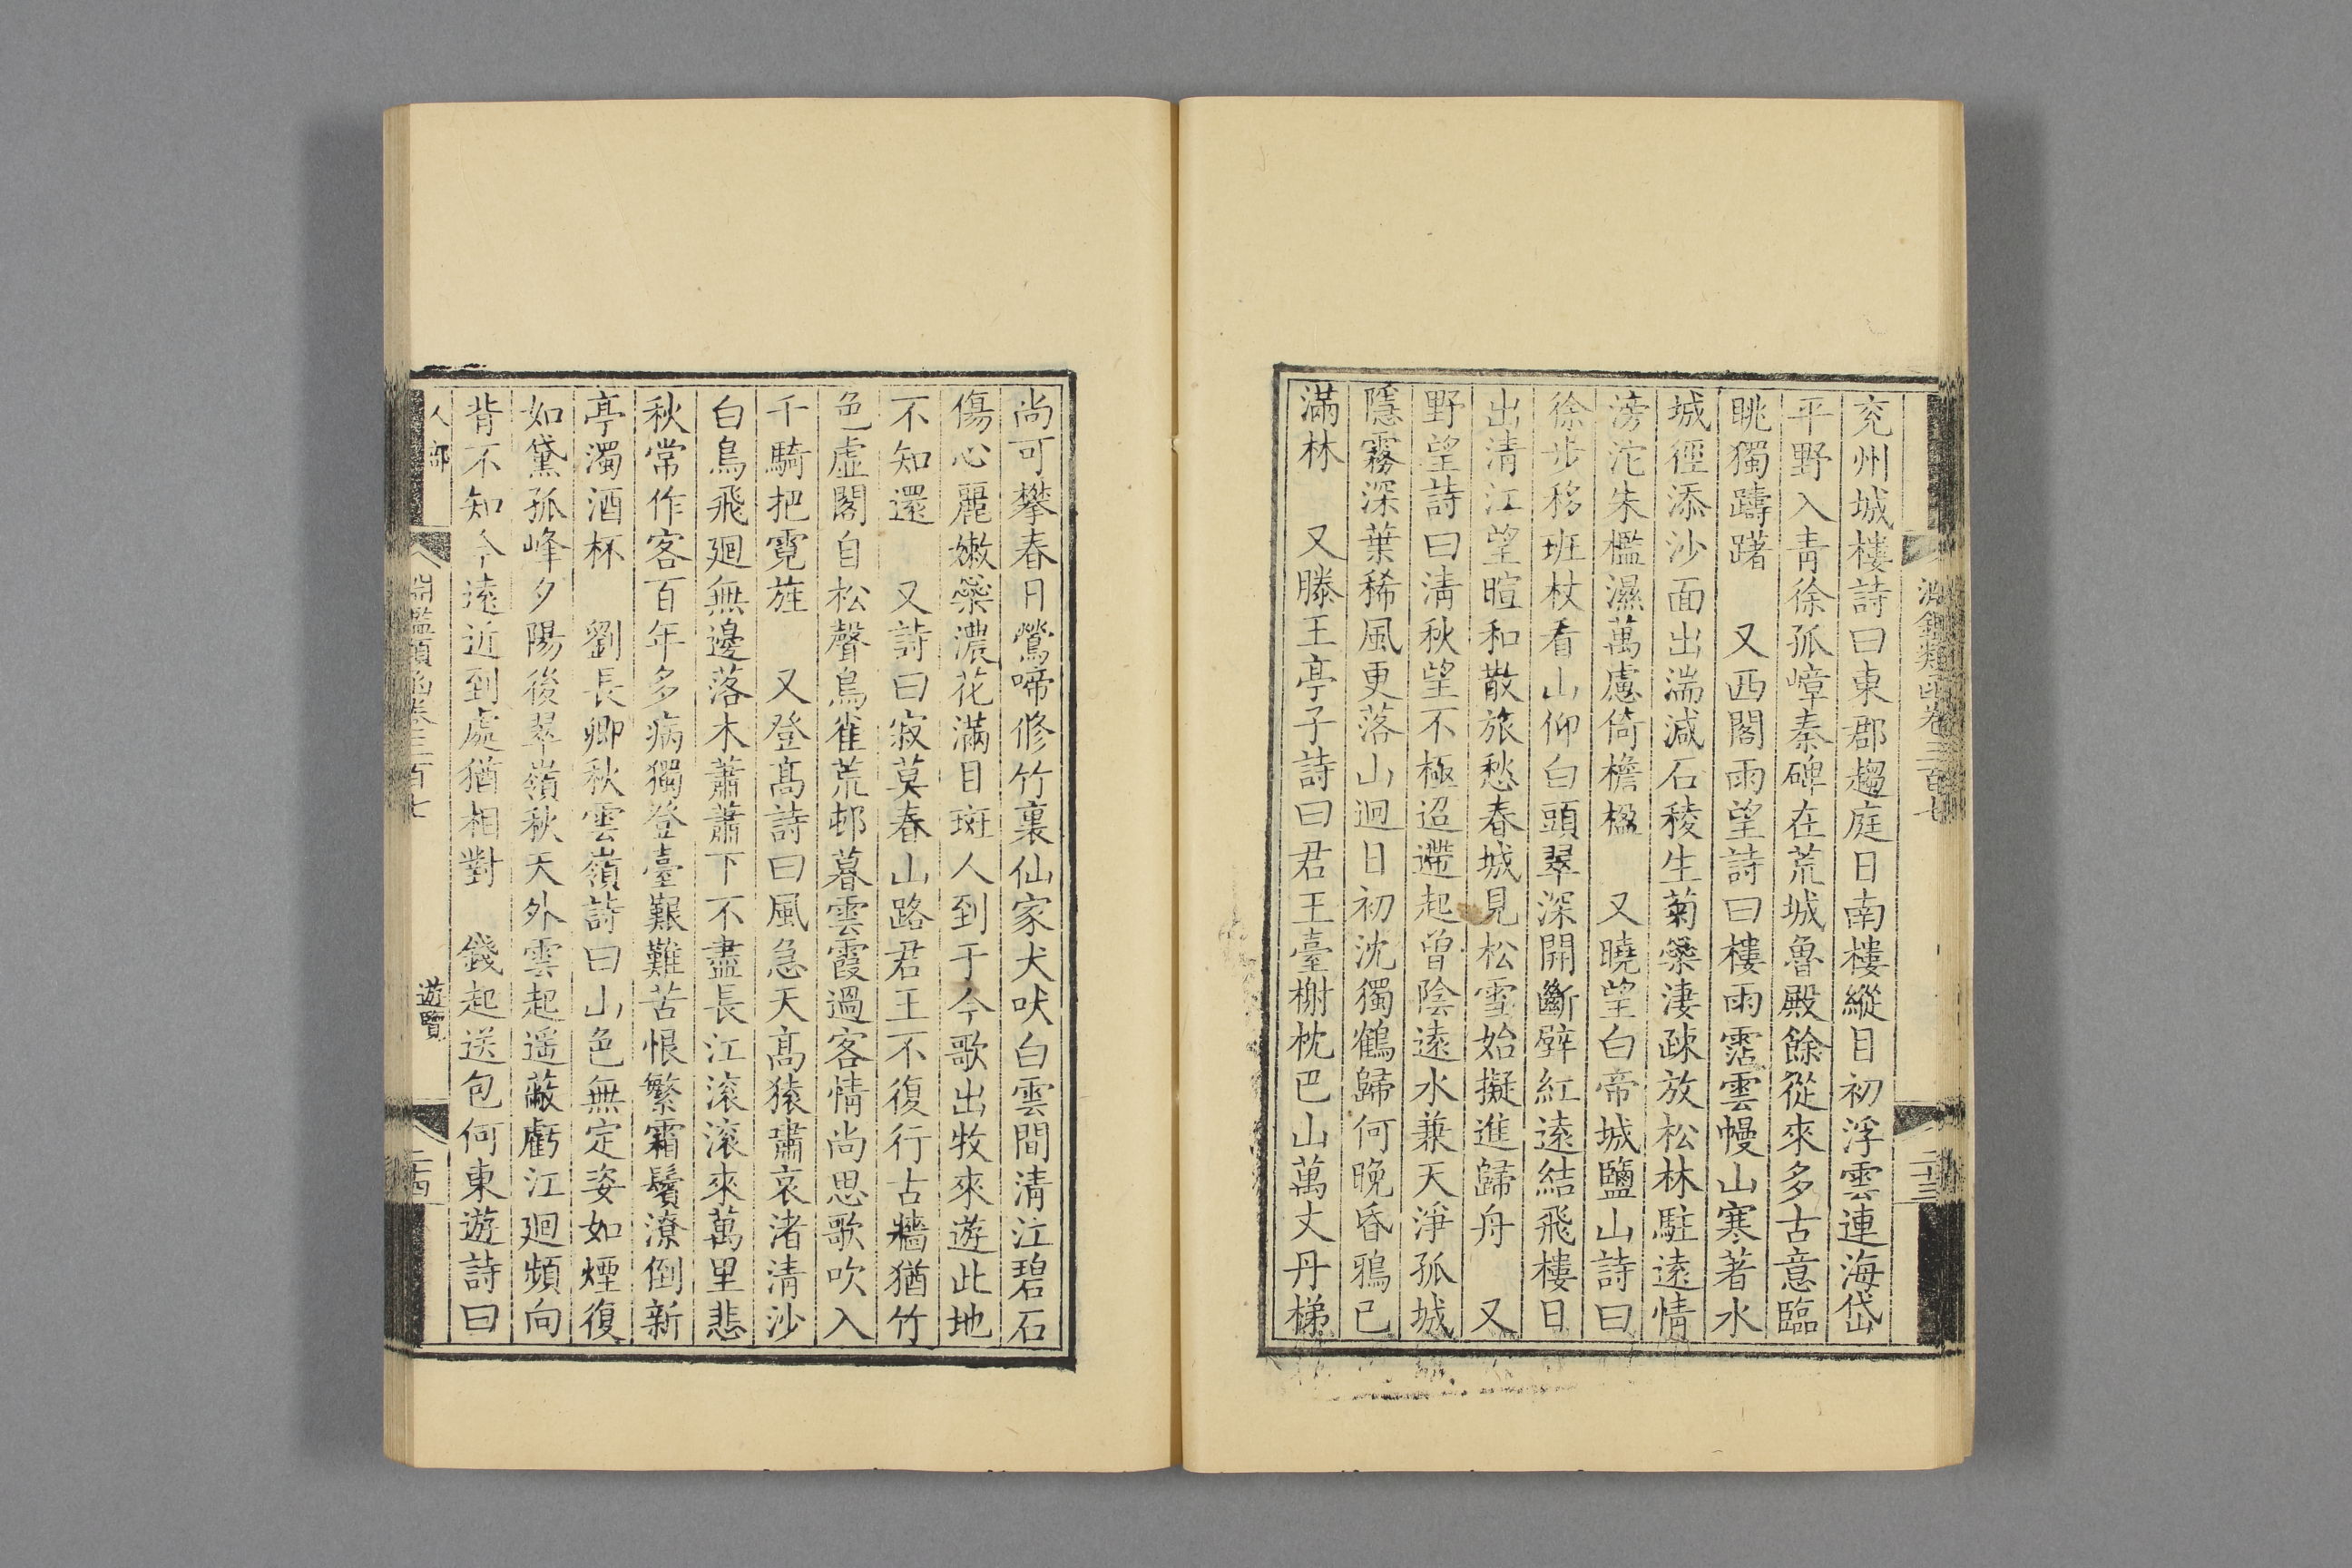 淵鑑類函卷三百七
二十三
兖州城樓詩曰東郡趨庭日南樓縱目初浮雲連海岱
平野入青徐孤嶂秦碑在荒城魯殿餘從來多古意臨
眺獨躊躇 又西閣雨望詩曰樓雨霑雲幔山寒著水
城徑添沙面出湍減石稜生菊蘂淒疎放松林駐遠情
滂沱朱檻濕萬慮倚檐楹 又曉望白帝城鹽山詩曰
徐步移班杖看山仰白頭翠深開斷壁紅遠結飛樓日
出清江望暄和散旅愁春城見松雪始擬進歸舟 又
野望詩曰清秋望不極迢遞起曾陰遠水兼天淨孤城
隱霧深葉稀風更落山迥日初沈獨鶴歸何晚昏鴉已
滿林 又滕王亭子詩曰君王臺榭枕巴山萬丈丹梯
尚可攀春日鶯啼修竹裏仙家犬吠白雲間清江碧石
傷心麗嫩蘂濃花滿目斑人到于今歌出牧來遊此地
不知還 又詩曰寂莫春山路君王不復行古牆猶竹
色虛閣自松聲鳥雀荒邨暮雲霞過客情尚思歌吹入
千騎把霓旌 又登高詩曰風急天高猿嘯哀渚清沙
白鳥飛廻無邊落木蕭蕭下不盡長江滚滚來萬里悲
秋常作客百年多病獨登臺艱難苦恨繁霜鬢潦倒新
亭濁酒杯 劉長卿秋雲嶺詩曰山色無定姿如煙復
如黛孤峰夕陽後翠嶺秋天外雲起遥蔽虧江廻頻向
背不知今遠近到處猶相對 錢起送包何東遊詩曰
人部
淵鑑類函卷三百七
遊覽
二十四